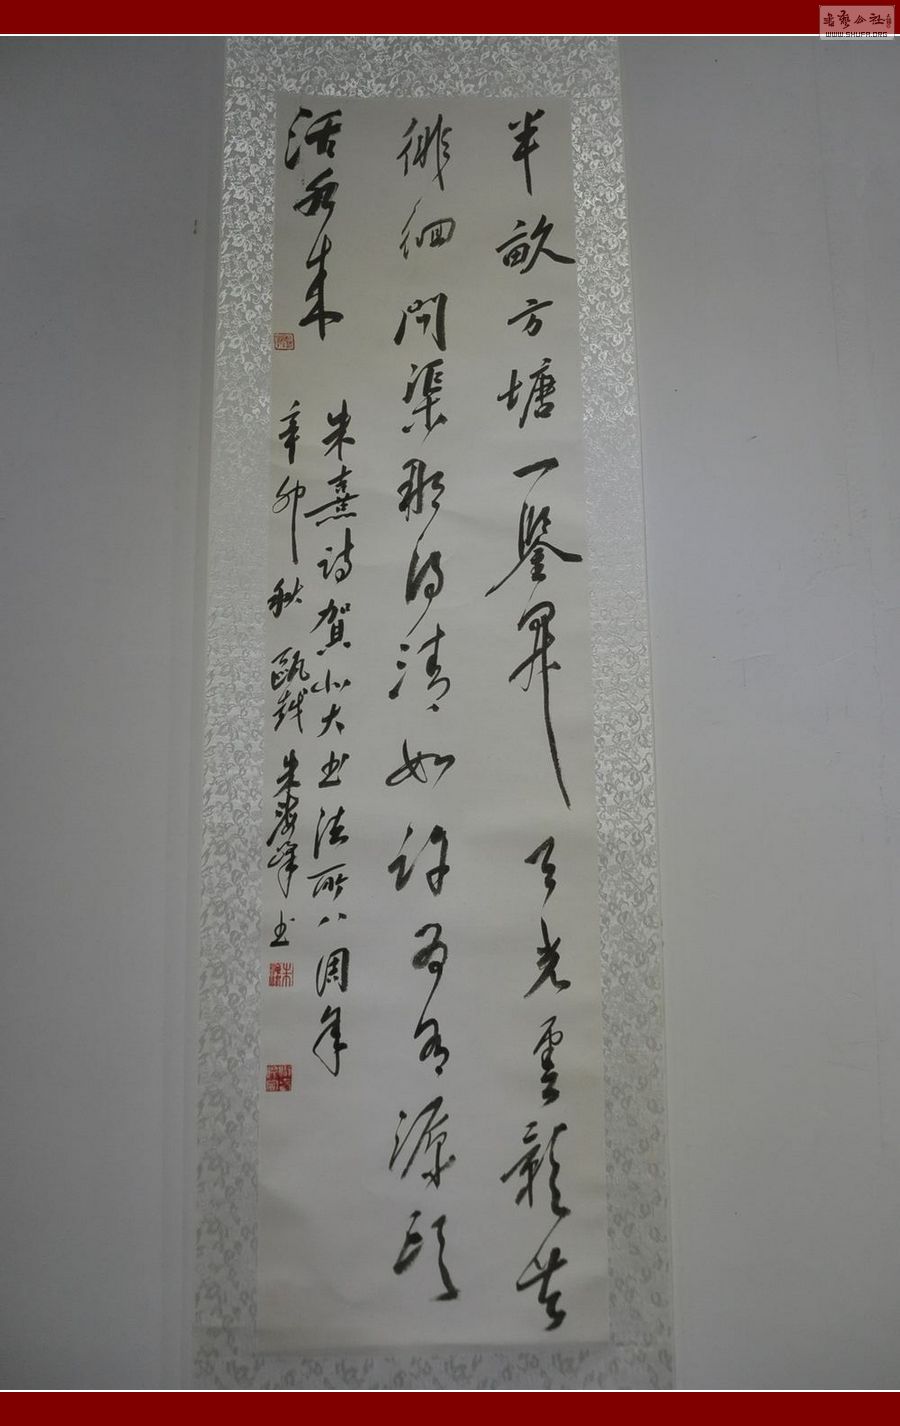 書藝公社
WWW.SHUFA.ORG
半畝方塘一鑒開天光雲影共
徘徊問渠那得清如許為有源頭
活水來
朱熹詩賀北大書法所八周年
辛卯秋甌越朱峰書